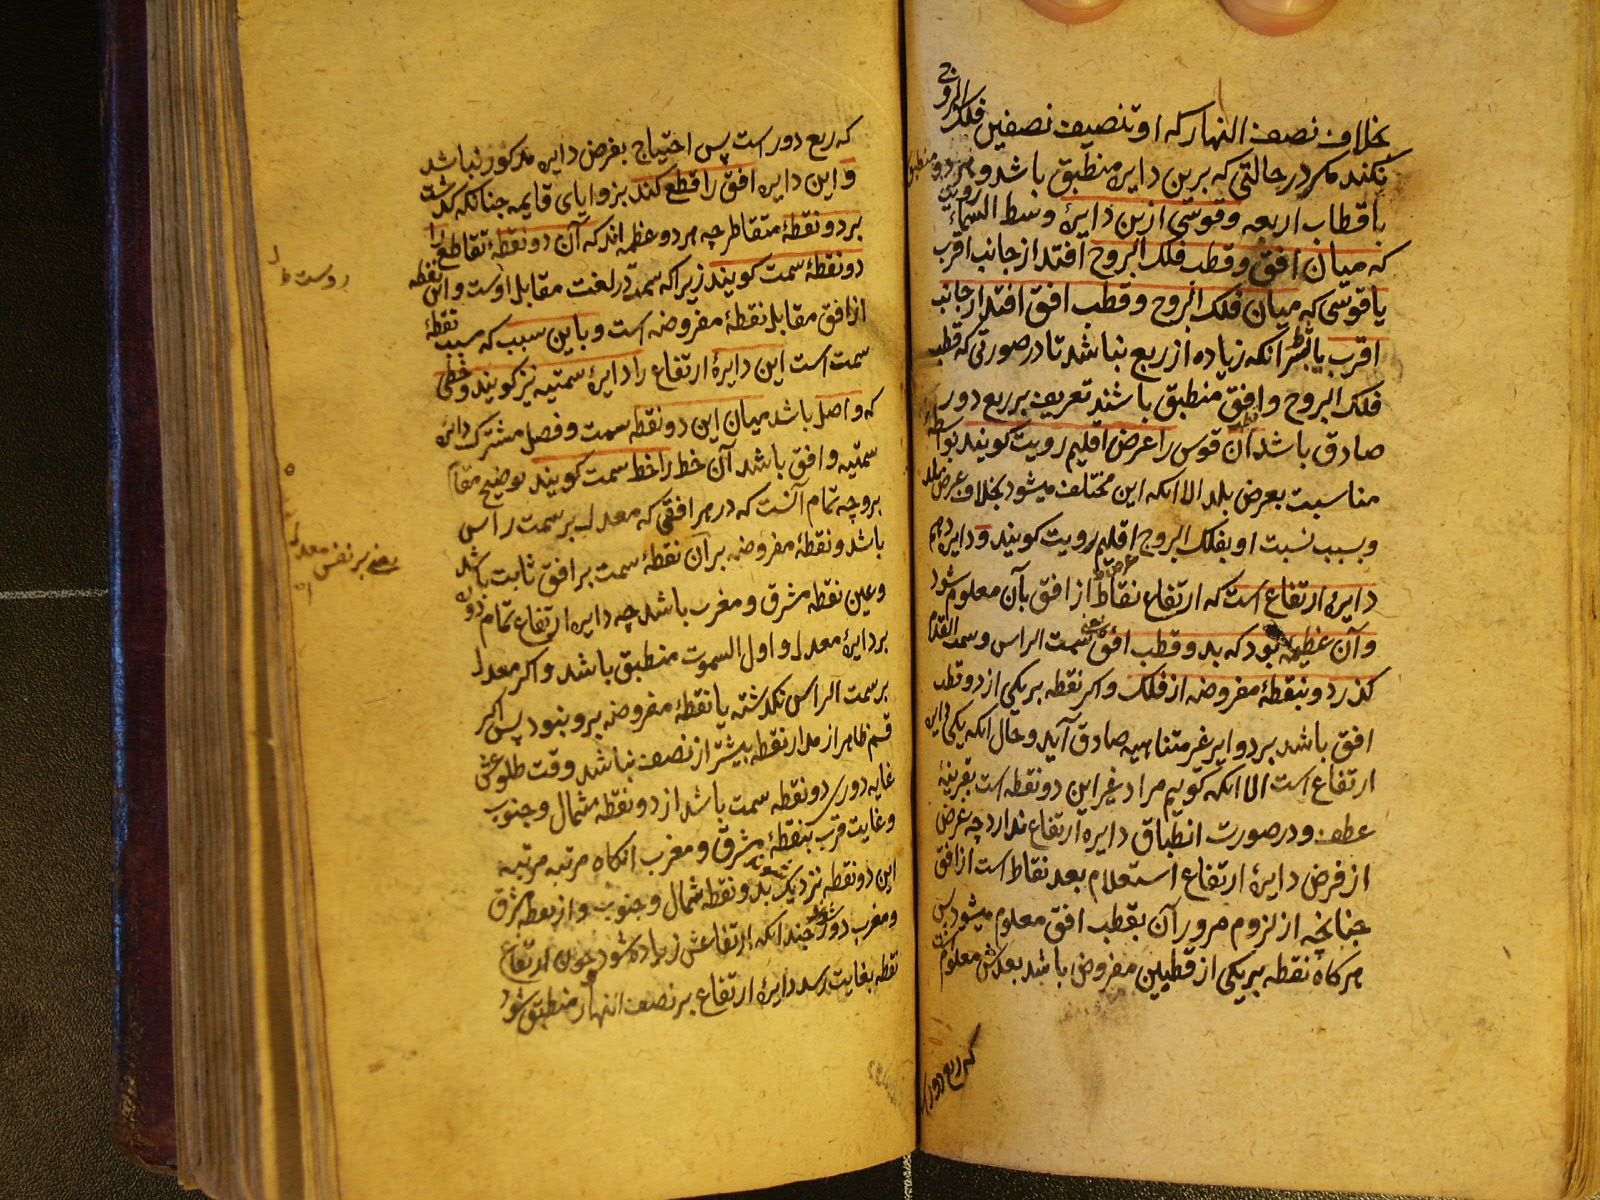 بخلاف نصف النهار که او تنصیف نصفین فلک البروج
نکند مکر در حالتی که برین دایره منطبق باشد و مرور منطبق
باقطاب اربعه و قوسی ازین دایرهٔ وسط السماء رویت
که میان افق و قطب فلک البروج افتد از جانب اقرب
یا قوسی که میان فلک البروج و قطب افق افتد از جانب
اقرب بانکه زیاده از ربع نباشد تا در صورتی که قطب
فلک البروج و افق منطبق باشند تعریف بر ربع دور
صادق باشد آن قوس را عرض اقلیم رویت کویند بواسطهٔ
مناسبت بعرض بلد الا انکه این مختلف میشود بخلاف عرض بلد
و بسبب نسبت او بفلک البروج اقلیم رویت کویند و دایره دهم
دایرهٔ ارتفاع است که ارتفاع نقاط از افق بآن معلوم شود
و آن عظیمه بود که بدو قطب افق یعنی سمت الراس و سمت القدم
کذرد و بنقطهٔ مفروضه از فلک و اکر نقطه بر یکی از دو قطب
افق باشد بر دوایر غیر متناهیه صادق آید و حال انکه یکی دایره
ارتفاع است الا انکه کوییم مراد غیر این دو نقطه است بقرینهٔ
عطف و در صورت انطباق دایرهٔ ارتفاع ندارد چه غرض
از فرض دایرهٔ ارتفاع استعلام بعد نقاط است از افق
چنانچه از لزوم مرور آن بقطب افق معلوم میشود پس
هرکاه نقطه بر یکی از قطبین مفروض باشد بعدش معلوم است
که ربع دور
که ربع دور است پس احتیاج بفرض دایره مذکور نباشد
و این دایره افق را قطع کند بزوایای قایمه چنانکه کذشت
بر دو نقطهٔ متقاطر چه هر دو عظیمه اند که آن دو نقطهٔ تقاطع را
دو نقطهٔ سمت کویند زیرا که سمت در لغت مقابل اوست و این نقطه
از افق مقابل نقطهٔ مفروضه است و باین سبب که سبب نقطهٔ
سمت است این دایرهٔ ارتفاع را دایرهٔ سمتیه نیز کویند و خطی
که واصل باشد میان این دو نقطه سمت و فصل مشترک دایره
سمتیه و افق باشد آن خط را خط سمت کویند توضیح مقام
بر وجه تمام آنست که در هر افقی که معدل بر سمت راس
باشد و نقطهٔ مفروضه بر آن نقطهٔ سمت بر افق ثابت باشد
و عین نقطه مشرق و مغرب باشد چه دایره ارتفاع تمام دور
بر دایرهٔ معدل و اول السموت منطبق باشد و اکر معدل
بر سمت الراس نکذشته یا نقطهٔ مفروضه برو نبود پس اکر
قسم ظاهر از مدار نقطه بیشتر از نصف نباشد وقت طلوعش
غایه دوری دو نقطه سمت باشد از دو نقطه شمال و جنوب
و غایت قرب بنقطهٔ مشرق و مغرب انکاه مرتبه مرتبه
این دو نقطه نزدیک شوند بدو نقطه شمال و جنوب و از نقطه مشرق
و مغرب دور شوند چندانکه ارتفاعش زیاده شود چون ارتفاع
نقطه بغایت رسد دایرهٔ ارتفاع بر نصف النهار منطبق شود
یعنی بر نفس معدل